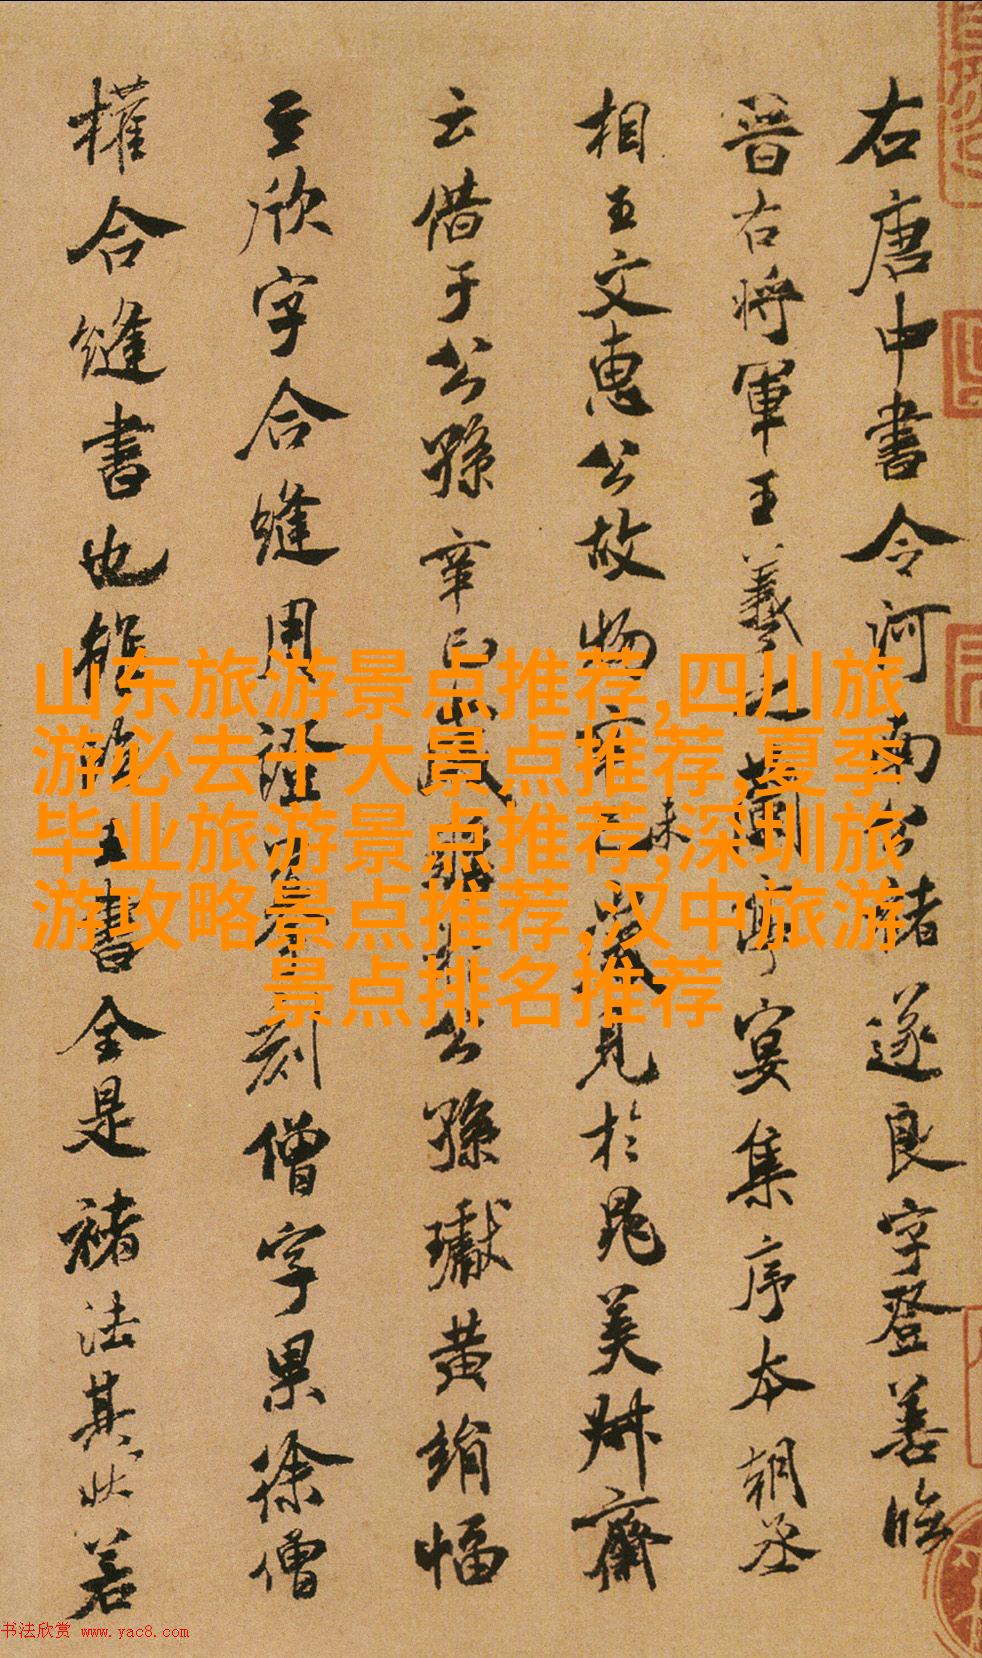 右唐中書令河南公褚遂良字登善臨
晉右將軍王羲之蘭亭宴集序本朝丞
相王文惠公故物 見於晁美叔齋
云借于公孫辛巳歲 公孫瓛黃絹幅
至欣字合縫用證 刻僧字果徐僧
權合縫書也雖 王書全是褚法其狀若
未
山东旅游景点推荐,四川旅
游必去十大景点推荐,夏季
毕业旅游景点推荐,深圳旅
游攻略景点推荐,汉中旅游
景点排名推荐
书法欣赏 www.yac8.com